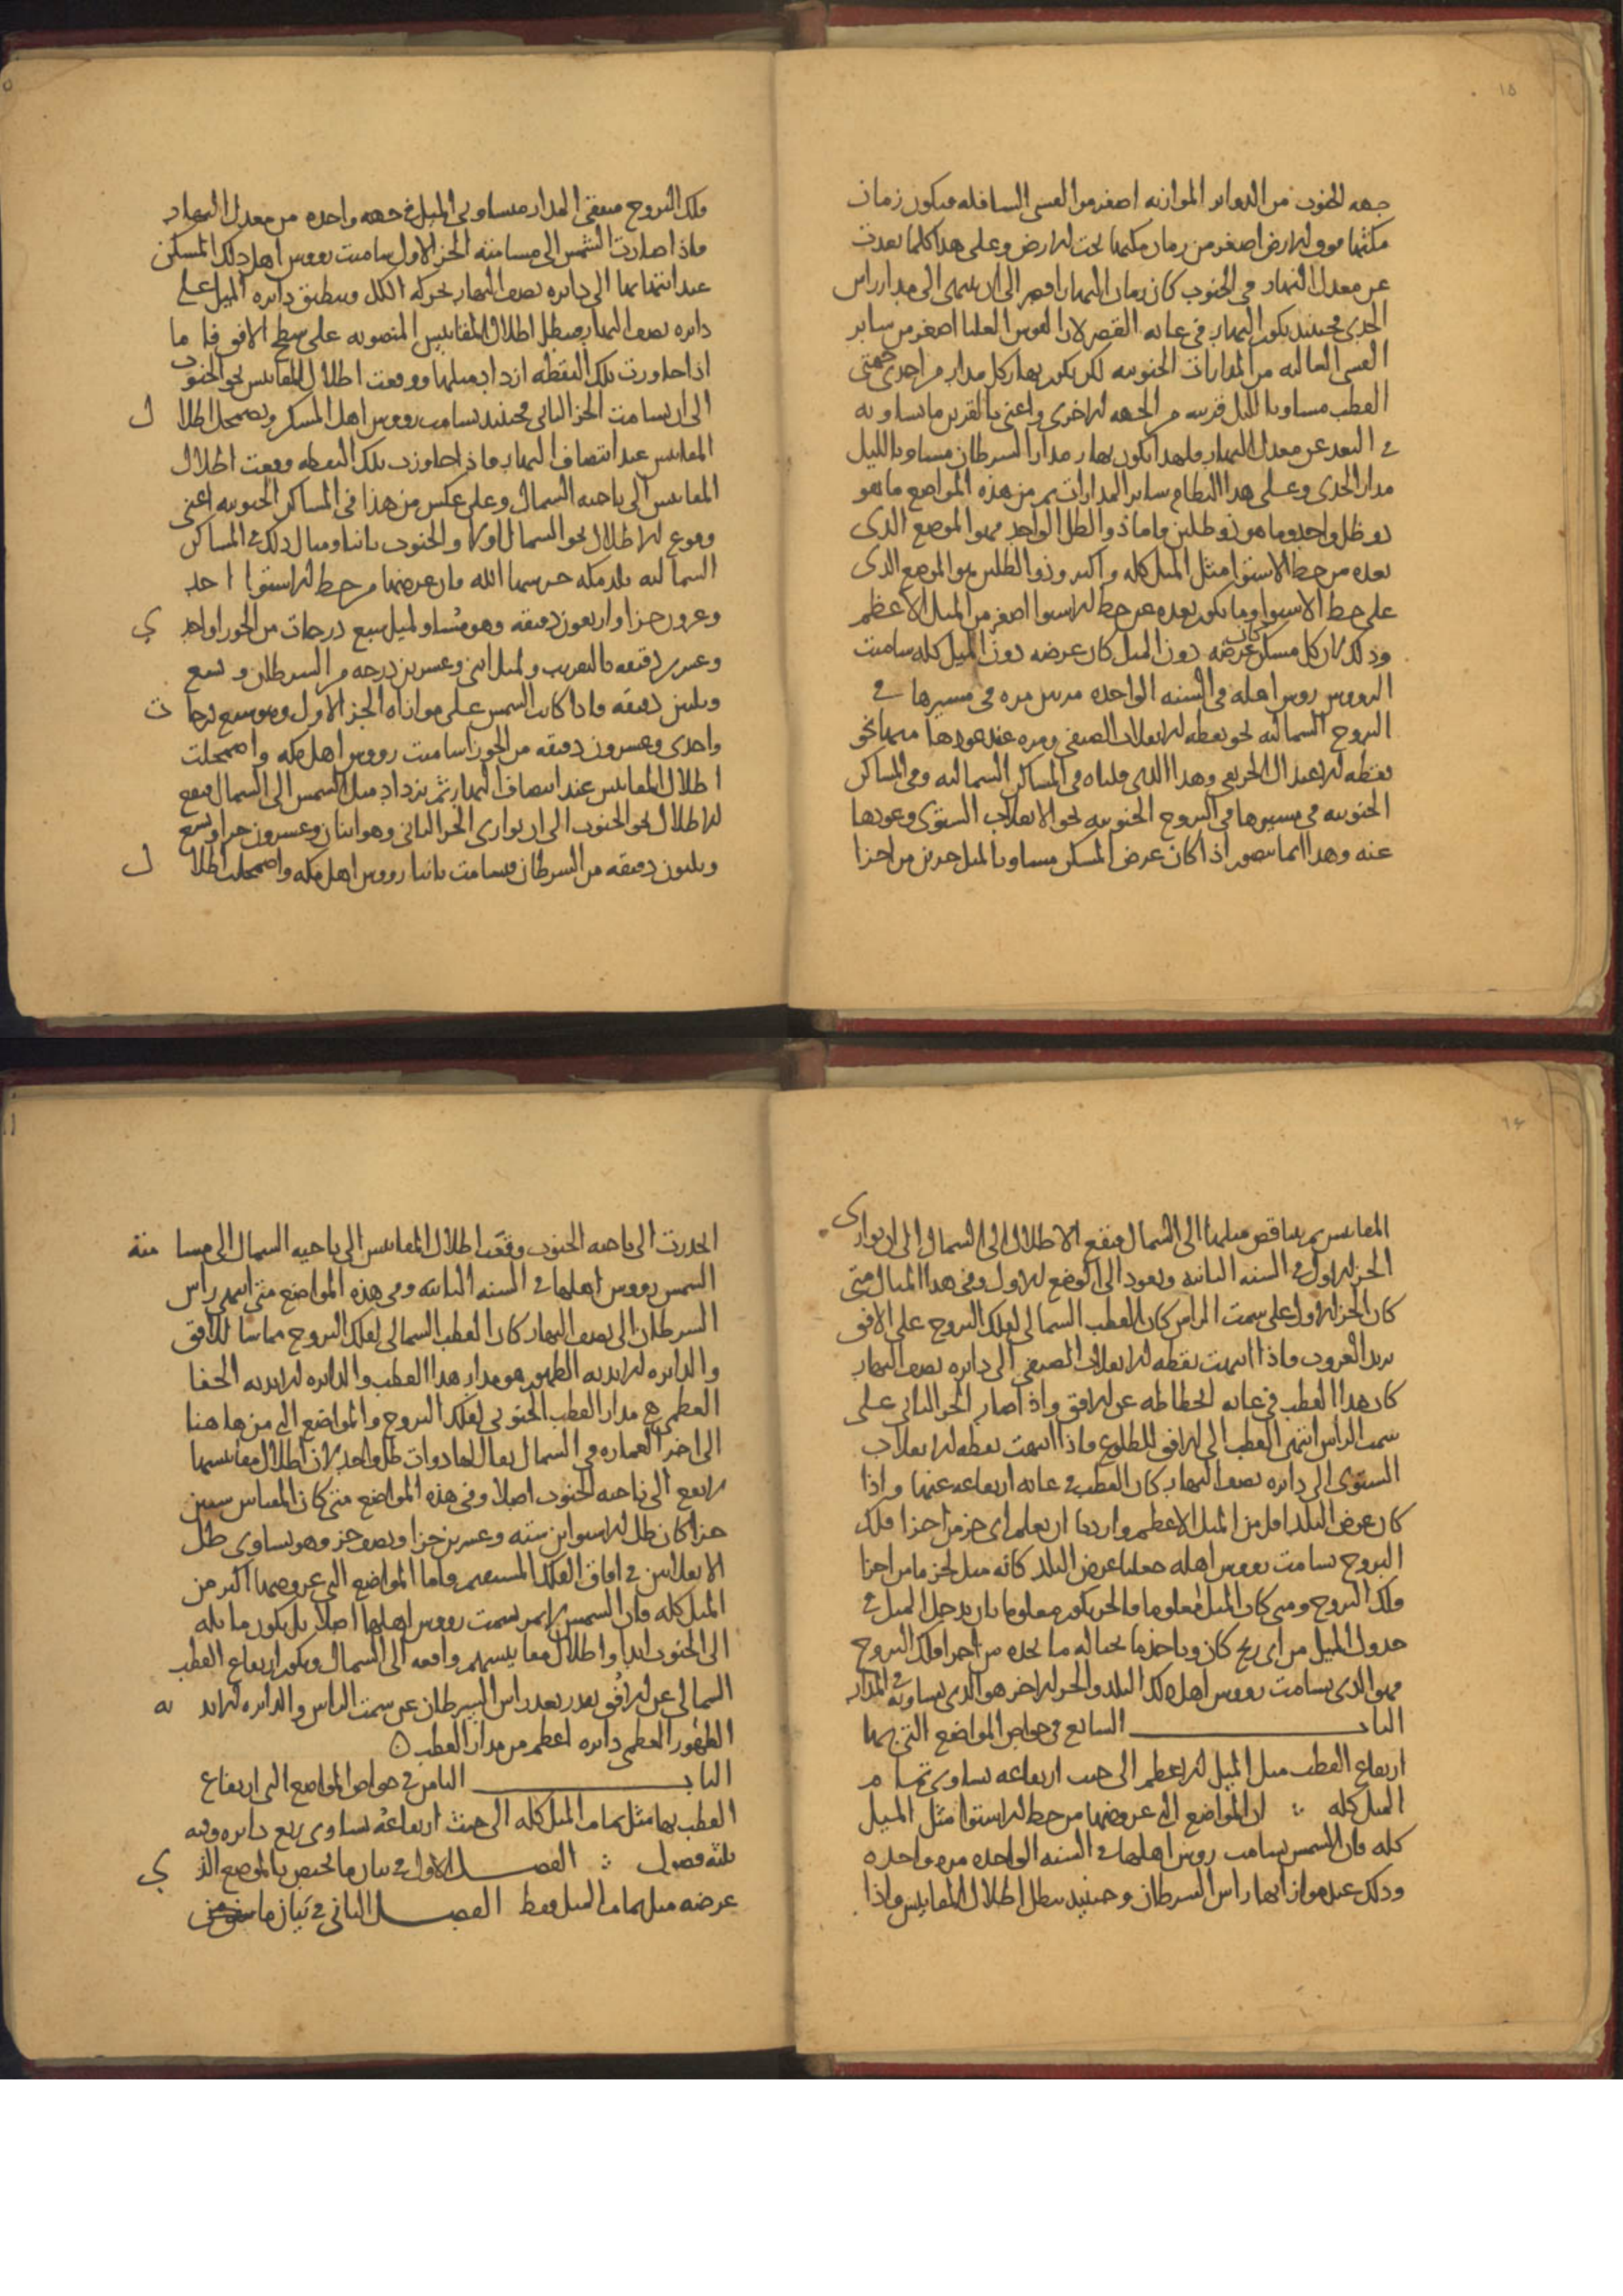 ١٥
جهه الجنوب من الدواير الموازيه اصغر من القسى السافله فيكون زمان
مكثها فوق الارض اصغر من زمان مكثها تحت الارض وعلى هذا كلما بعدت
عن معدل النهار فى الجنوب كان زمان النهار اقصر الى ان ينتهى الى مدار راس
الجدى فحينئذ يكون النهار فى غايه القصر لان القوس العليا اصغر من ساير
القسى العاليه من المدارات الجنوبيه لكن يكون نهار كل مدار من احدى جهتى
القطب مساويا لليل قرينه من الجهه الاخرى واعنى بالقرين ما يساويه
فى البعد عن معدل النهار ولهذا يكون نهار مدار السرطان مساويا لليل
مدار الجدى وعلى هذا النظام ساير المدارات ثم من هذه المواضع ما هو
ذو ظل واحد وما هو ذو ظلين واما ذو الظل الواحد فهو الموضع الذى
بعده من خط الاستوا مثل الميل كله واكثر وذو الظلين هو الموضع الذى
على خط الاستوا وما يكون بعده عن خط الاستوا اصغر من الميل الاعظم
وذلك لان كل مسكن كان عرضه دون الميل كان عرضه دون الميل كله سامتت
الرووس روس اهله فى السنه الواحده مرتين مره فى مسيرها فى
البروج الشماليه نحو نقطه الانقلاب الصيفى ومره عند عودها منها نحو
نقطه الاعتدال الخريفى وهذا الذى قلناه فى المساكن الشماليه وفى المساكن
الجنوبيه فى مسيرها فى البروج الجنوبيه نحو الانقلاب الشتوى وعودها
عنه وهذا انما يتصور اذا كان عرض المسكن مساويا لميل جزين من اجزا
فلك البروج متفقى المدار متساويى الميل فى جهه واحده من معدل النهار
فاذا صارت الشمس الى مسامته الجز الاول سامتت رووس اهل ذلك المسكن
عند انتهايها الى دايره نصف النهار بحركه الكل وينطبق دايره الميل على
دايره نصف النهار فيبطل اظلال المقاييس المنصوبه على سطح الافق فا ما
اذا جاوزت تلك النقطه ازداد ميلها ووقعت اظلال المقاييس نحو الجنوب
الى ان يسامت الجز الثانى فحينئذ يسامت رووس اهل المسكن ويضمحل اظلا ل
المقاييس عند انتصاف النهار فاذا جاوزت تلك النقطه وقعت اظلال
المقاييس الى ناحيه الشمال وعلى عكس من هذا فى المساكن الجنوبيه اعنى
وقوع الاظلال نحو الشمال اولا والجنوب ثانيا ومثال ذلك فى المساكن
الشماليه بلد مكه حرسها الله فان عرضها من خط الاستوا احد
وعشرون جزا واربعون دقيقه وهو مساو لميل سبع درجات من الجوزا واحد ي
وعشرين دقيقه بالتقريب ولميل اثنى وعشرين درجه من السرطان وتسع
وثلثين دقيقه فاذا كانت الشمس على موازاه الجز الاول وهو سبع درجا ت
واحدى وعشرون دقيقه من الجوزا سامتت رووس اهل مكه واضمحلت
اظلال المقاييس عند انتصاف النهار ثم يزداد ميل الشمس الى الشمال فيقع
الاظلال نحو الجنوب الى ان يوازى الجز الثانى وهو اثنان وعشرون جزا وتسع
وثلثون دقيقه من السرطان فيسامت ثانيا رووس اهل مكه واضمحلت اظلا ل
١٦
المقاييس ثم يتناقص ميلها الى الشمال فيقع الاظلال الى الشمال الى ان يوازى
الجز الاول فى السنه الثانيه ويعود الى الوضع الاول وفى هذا المثال متى
كان الجز الاول على سمت الراس كان القطب الشمالى لفلك البروج على الافق
يريد الغروب فاذا انتهت نقطه الانقلاب الصيفى الى دايره نصف النهار
كان هذا القطب فى غايه انحطاطه عن الافق واذا صار الجز الثانى على
سمت الراس انتهى القطب الى الافق للطلوع فاذا انتهت نقطه الانقلاب
الشتوى الى دايره نصف النهار كان القطب فى غايه ارتفاعه عنها واذا
كان عرض البلد اقل من الميل الاعظم واردنا ان يعلم اى جز من اجزا فلك
البروج يسامت رووس اهله جعلنا عرض البلد كانه ميل لجز ما من اجزا
فلك البروج ومتى كان الميل معلوما فالجز يكون معلوما بان يدخل الميل فى
جدول الميل من اى ربع كان وياخذ ما بحياله ما نجده من اجزا فلك البروج
فهو الذى يسامت رووس اهل ذلك البلد والجز الاخر هو الذى يساويه فى المدار
الباب السابع فى خواص المواضع التى بها
ارتفاع القطب مثل الميل الاعظم الى حيث ارتفاعه يساوى تمام
الميل كله ∴ ان المواضع التى عروضها من خط الاستوا مثل الميل
كله فان الشمس يسامت روس اهلها فى السنه الواحده مره واحده
وذلك عند موازاتها راس السرطان وحينئذ يبطل اظلال المقاييس واذا
انحدرت الى ناحيه الجنوب وقعت اظلال المقاييس الى ناحيه الشمال الى مسا متة
الشمس رووس اهلها فى السنه الثانيه وفى هذه المواضع متى انتهى راس
السرطان الى نصف النهار كان القطب الشمالى لفلك البروج مماسا للافق
والدايره الابديه الظهور هو مدار هذا القطب والدايره الابديه الخفا
العظمى هى مدار القطب الجنوبى لفلك البروج والمواضع التى من هاهنا
الى اخر العماره فى الشمال يقال لها ذوات ظل واحد لان اظلال مقاييسها
لا يقع الى ناحيه الجنوب اصلا وفى هذه المواضع متى كان المقياس ستين
جزا كان ظل الاستواين سته وعشرين جزا ونصف جز وهو يساوى ظل
الانقلابين فى افاق الفلك المستقيم واما المواضع التى عروضها اكبر من
الميل كله فان الشمس لا يمر بسمت رووس اهلها اصلا بل يكون مايله
الى الجنوب ابدا واظلال مقاييسهم واقعه الى الشمال ويكون ارتفاع القطب
الشمالى عن الافق بقدر بعد راس السرطان عن سمت الراس والدايره الابد يه
الظهور العظمى دايره اعظم من مدار القطب
الباب الثامن فى خواص المواضع التى ارتفاع
القطب بها مثل تمام الميل كله الى حيث ارتفاعه يساوى ربع دايره وفيه
ثلثه فصول ∴ الفصل الاول فى بيان ما يختص بالموضع الذ ي
عرضه مثل تمام الميل فقط الفصل الثانى فى بيان ما